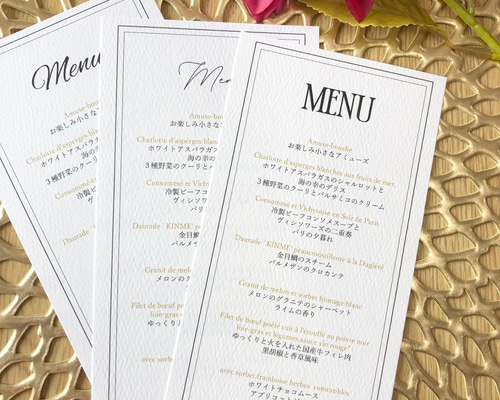 Menu
Amuse-bou
お楽しみ小さな
Charlotte d'asperges
ホワイトアスパラガス
海の
3種野菜のクーリと
Consommé
冷製
Daurade
Me
Amuse-bou
お楽しみ小さなア
Charlotte d'asperges blanche
ホワイトアスパラガスの
海の幸
3種野菜のクーリとバル
Consommé et Vichysoi
冷製ビーフコン
ヴィシソワーズ
パリの夕
Daurade " KINME" panc
金目鯛の
パルメザン
Granit de melon
メロンのグラ
ライ
Filet de bœuf poêlé
foie-gras
ゆっくりと火
黒
avec sorbet
MENU
Amuse-bouche
お楽しみ小さなアミューズ
Charlotte d'asperges blanches aux fruits de mer,
ホワイトアスパラガスのシャルロットと
海の幸のデリス
3種野菜のクーリとバルサミコのクリーム
Consommé et Vichysoise en Soir de Paris
冷製ビーフコンソメスープと
ヴィシソワーズの二重奏
パリの夕暮れ
Daurade " KINME"
金目鯛のスチーム
パルメザンのクロカンテ
Granit de melon et sorbet fromage blanc
メロンのグラニテのシャーベット
ライムの香り
Filet de bœuf poêlé cuit à l'étouffé au poivre noir
foie-gras et légumes,sauce vin rouge"
ゆっくりと火を入れた国産牛フィレ肉
黒胡椒と香草風味
avec sorbet,framboise herbes
ホワイトチョコムース